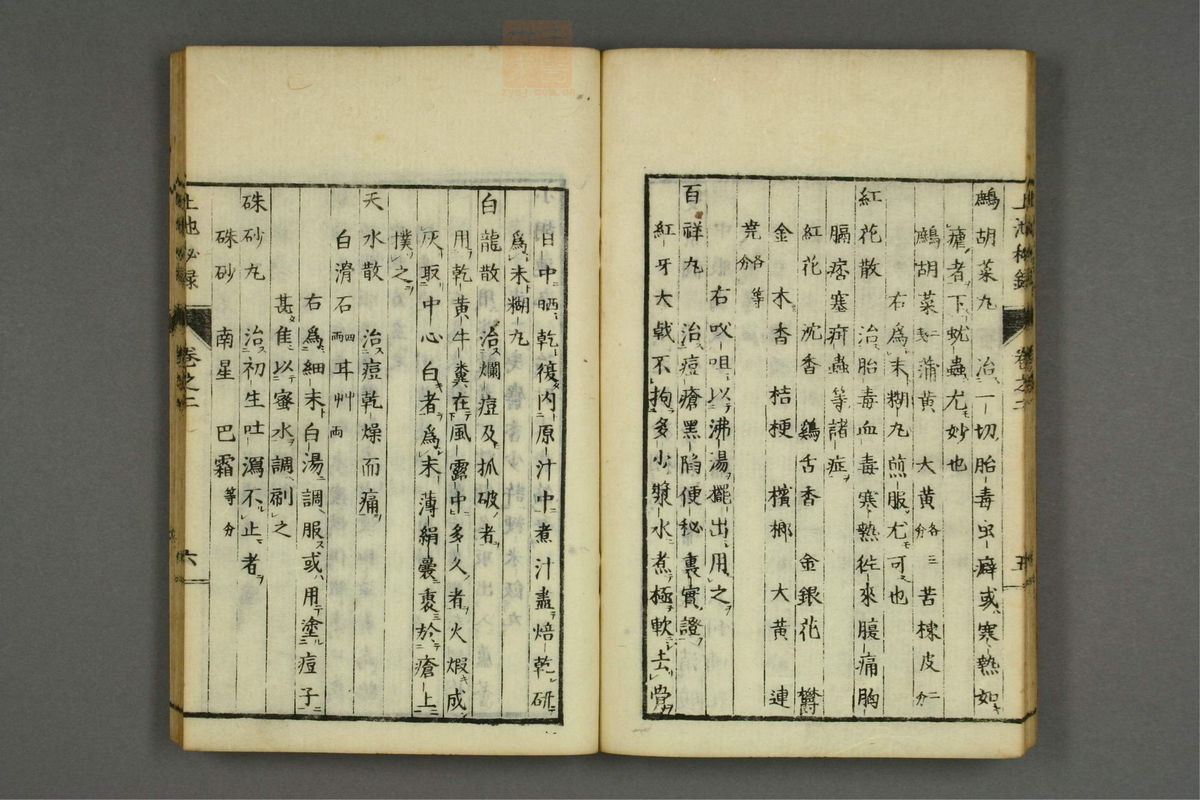 鷓胡菜丸 治一切胎毒虫癖或寒熱如
瘧者下蚘蟲尤妙也
鷓胡菜 蒲黃 大黃各三分 苦楝皮二分
右爲末糊丸煎服尤可也
紅花散 治胎毒血毒寒熱徃來腹痛胸
膈痞塞疳蟲等諸症
紅花 沈香 鷄舌香 金銀花 欝
金 木香 桔梗 檳榔 大黃 連
堯各等分
右㕮咀以沸湯擺出用之
百祥丸 治痘瘡黑陷便秘裏實證
紅牙大戟不拘多少漿水煮極軟去骨
日中晒乾復内原汁中煮汁盡焙乾研
爲末糊丸
白龍散 治爛痘及抓破者
用乾黃牛糞在風露中多久者火煆成
灰取中心白者爲末薄絹囊裹於瘡上
撲之
天水散 治痘乾燥而痛
白滑石四兩 耳艸一兩
右爲細末白湯調服或用塗痘子
甚隹以蜜水調刷之
硃砂丸 治初生吐瀉不止者
硃砂 南星 巴霜等分
上池秘録 卷之二 五
上池秘録 卷之二 六